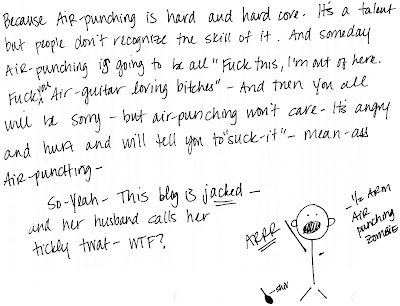 Because Air-punching is hard and hard core. It's a talent
but people don't recognize the skill of it. And someday
Air-punching is going to be all "Fuck this, I'm out of here.
Fuck you, Air-guitar loving bitches" - And then you all
will be sorry - but air-punching won't care - It's angry
and hurt and will tell you to "suck-it" - mean-ass
Air-punching -
So-Yeah - This blog is jacked -
and her husband calls her
tickly twat - WTF?
ARRR
- 1/2 Arm
Air
punching
zombie